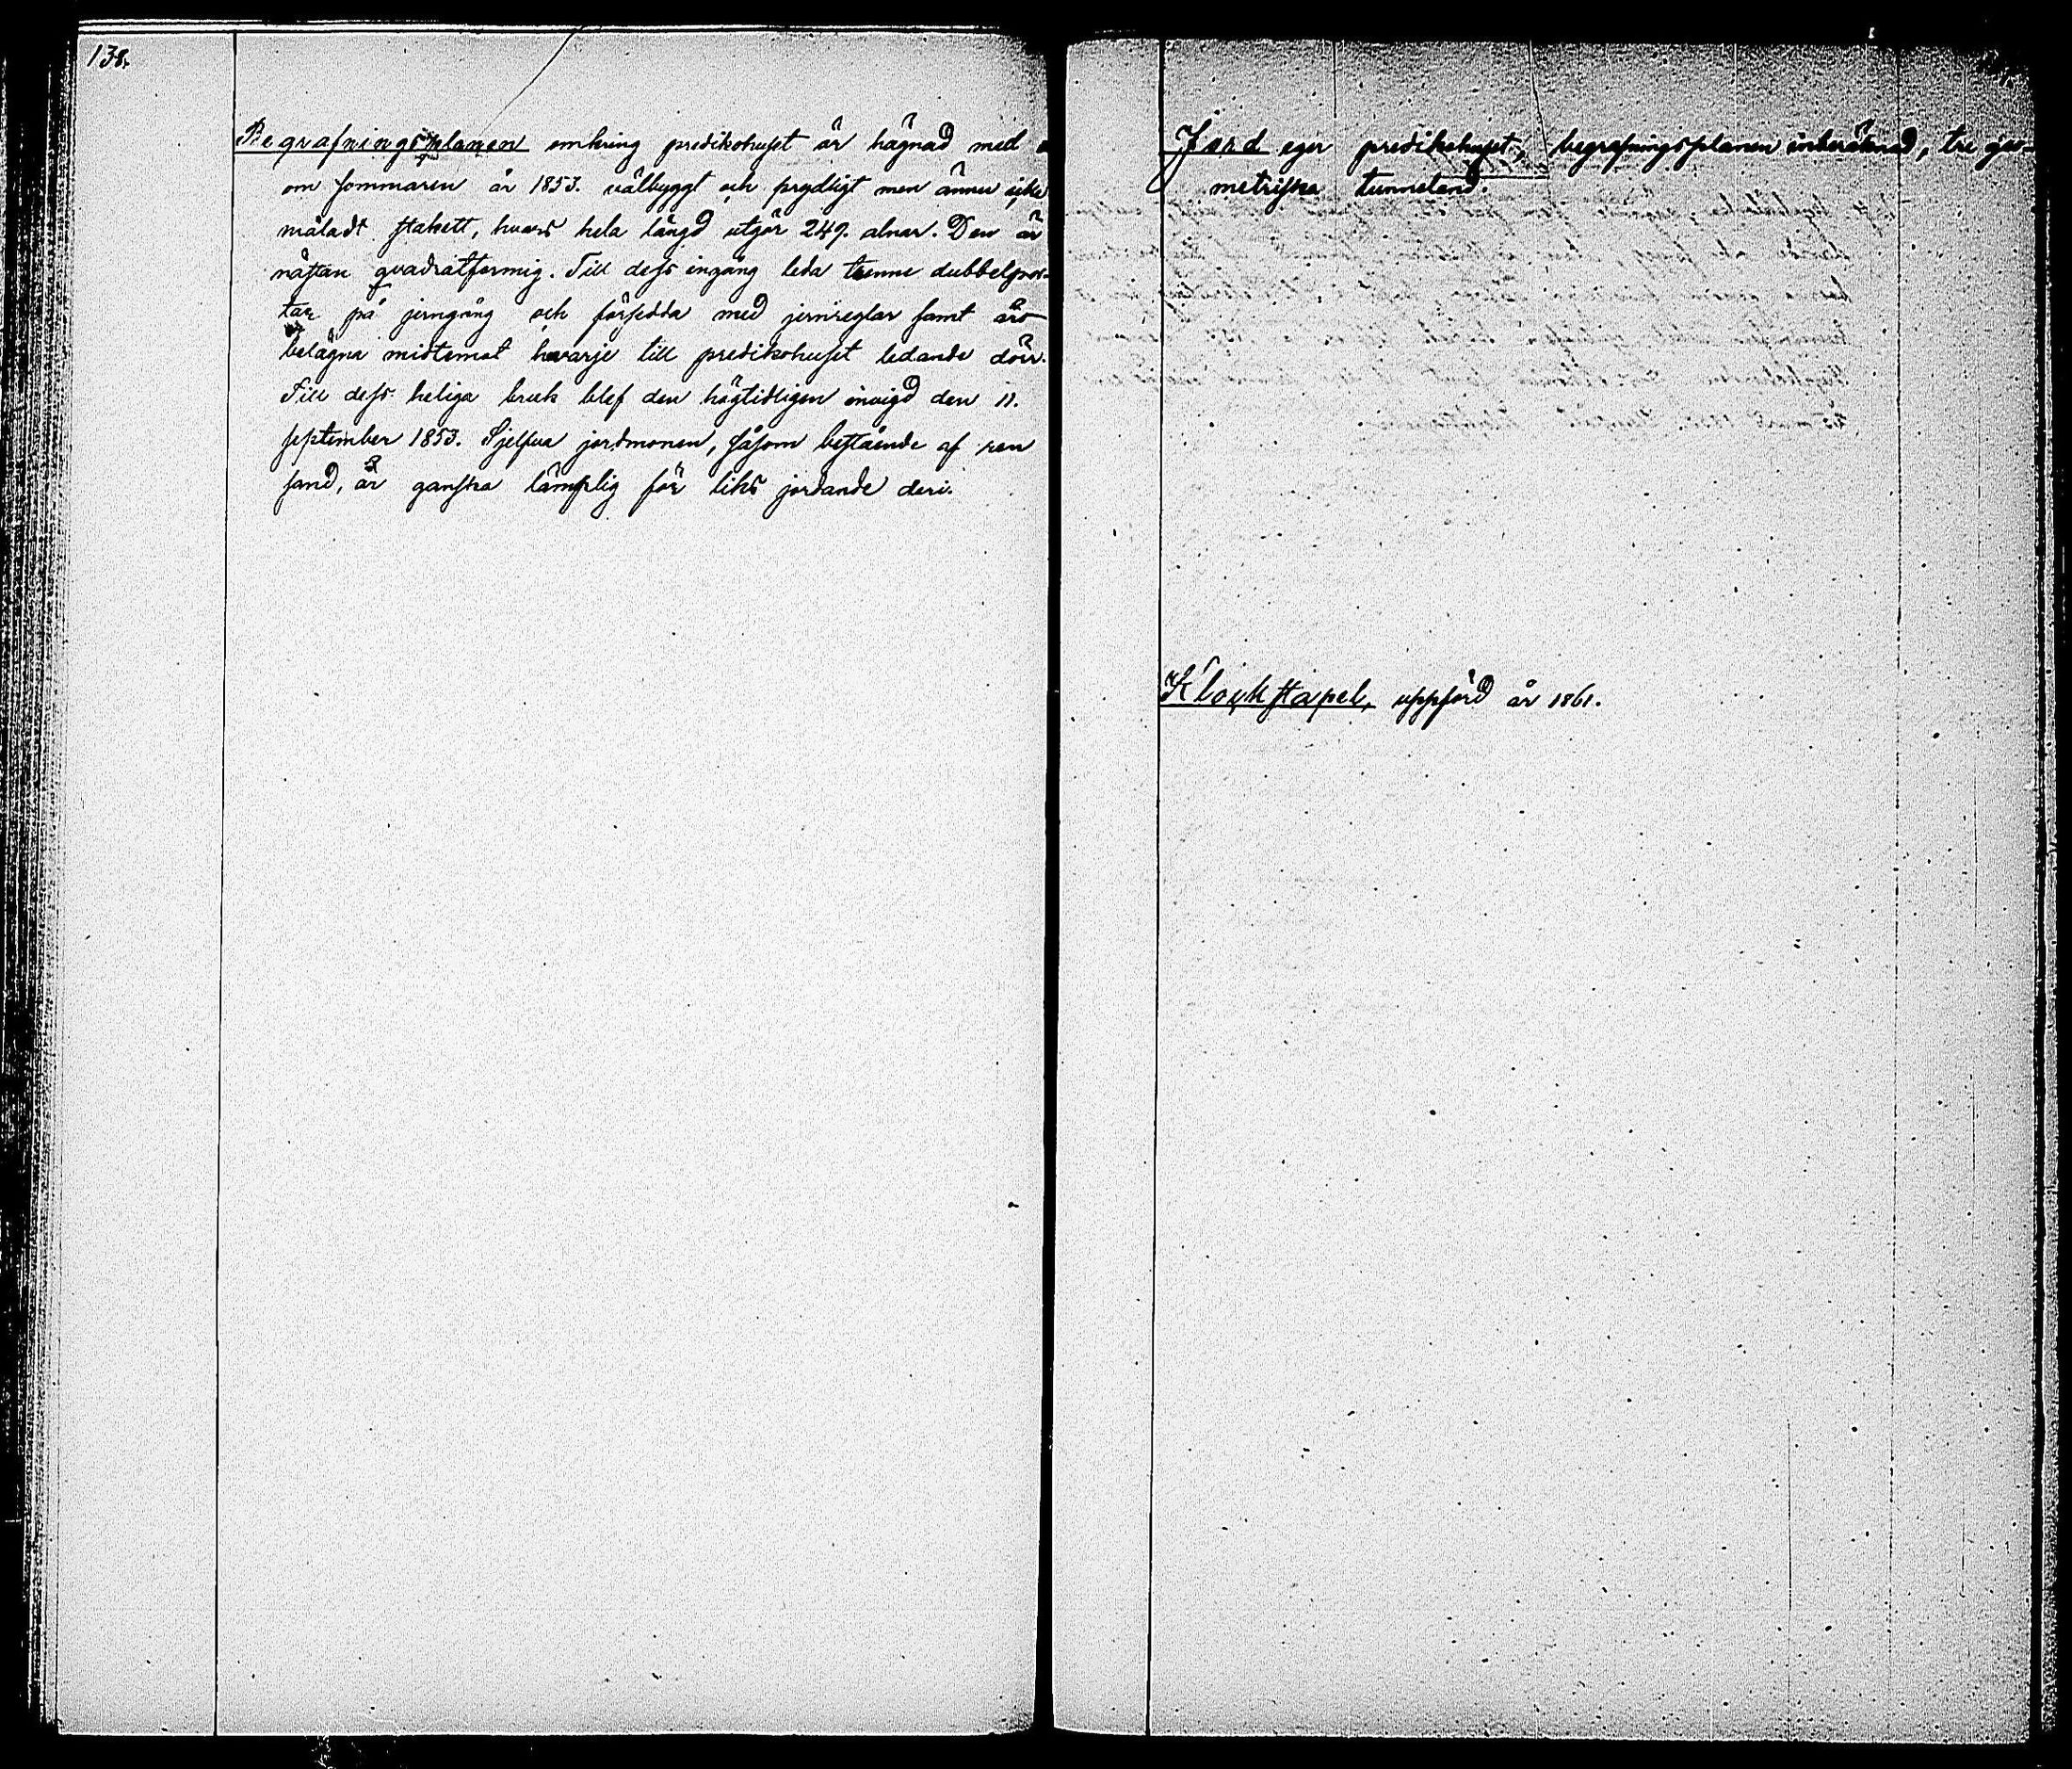 138.
Begrafningsplanen omkring predikohuset är hägnad med
om sommaren år 1853. välbyggt och prydligt men ännu icke
måladt staket, hvars hela längd utgör 249. alnar. Den är
nästan qvadratformig. Till dess ingång leda tvenne dubbelpor-
tar på jerngång och försedda med jernreglar samt äro
belägna midtemot hvarje till predikohuset ledande dörr.
Till dess heliga bruk blef den högtidligen invigd den 11.
september 1853. Sjelfva jordmonen, såsom bestående af ren
sand, är ganska lämplig för liks jordande deri.
Jord eger predikohuset, begrafningsplanen inberäknad, tre geo-
metriska tunneland.
Klockstapel, uppförd år 1861.